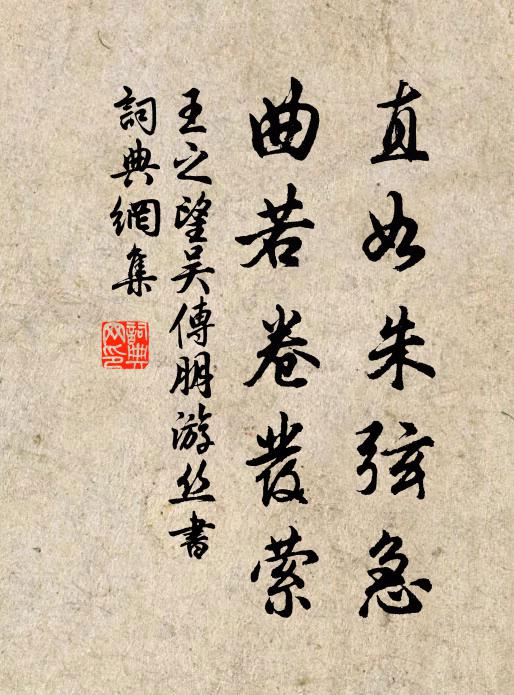 直如朱弦急
曲若卷發縈
王之望吳傅朋游丝書
詞典網集
詞典網印